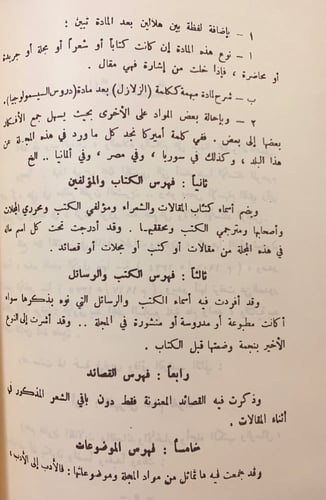 ١ – بإضافة لفظة بين هلالين بعد المادة تبين :
١ – نوع هذه المادة إن كانت كتاباً أو شعراً أو مجلة أو جريدة
أو محاضرة ، فإذا خلت من إشارة فهي مقال .
ب – شرح لمادة مبهمة ككلمة (الزلازل) بعد مادة (دروس السيسمولوجيا).
٢ – وبإحالة بعض المواد على الأخرى بحيث يسهل جمع الأفكار
بعضها إلى بعض . ففي كلمة أميركا نجد كل ما ورد في هذه المجلة عن
هذا البلد ، وكذلك في سوريا ، وفي مصر ، وفي ألمانيا .. الخ
ثانياً : فهرس الكتاب والمؤلفين
ويضم أسماء كتّاب المقالات والشعراء ومؤلفي الكتب ومحرري المجلات
وأصحابها ومترجمي الكتب ومحققيها . وقد أدرجت تحت كل اسم ما له
في هذه المجلة من مقالات أو كتب أو مجلات أو قصائد .
ثالثاً : فهرس الكتب والرسائل
وقد أفردت فيه أسماء الكتب والرسائل التي نوه بذكرها سواء
أكانت مطبوعة أو مدروسة أو منشورة في المجلة .. وقد أشرت إلى النوع
الأخير بنجمة وضعتها قبل الكتاب .
رابعاً : فهرس القصائد
وذكرت فيه القصائد المعنونة فقط دون باقي الشعر المذكور في
أثناء المقالات .
خامساً : فهرس الموضوعات
وقد جمعت فيه ما تماثل من مواد المجلة وموضوعاتها : فالأدب إلى الأدب ،